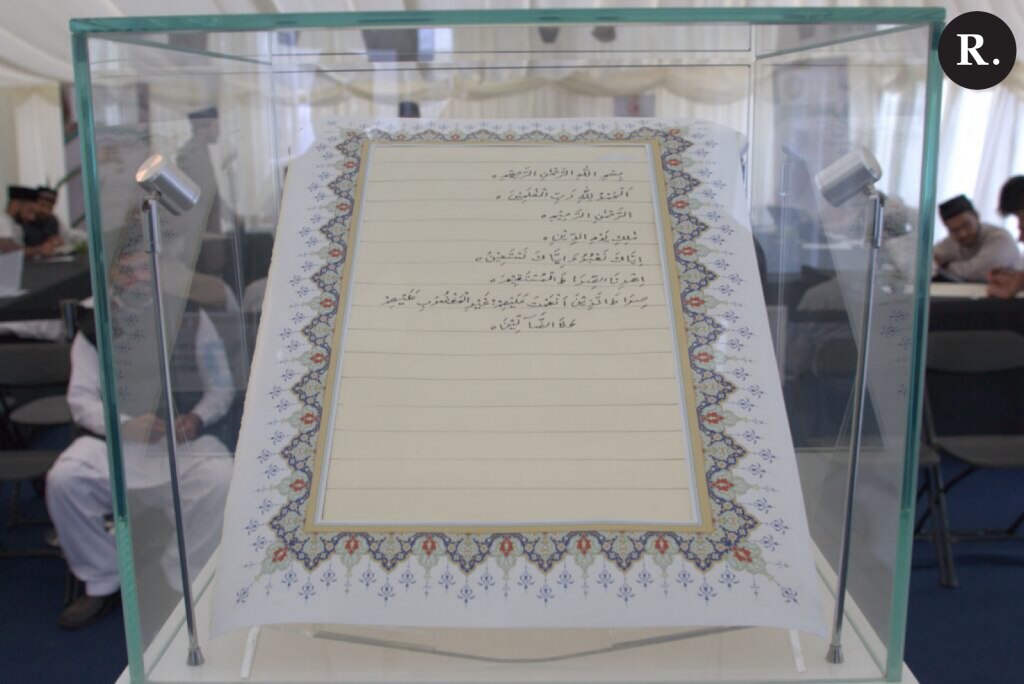 R.
بِسْمِ اللّٰهِ الرَّحْمٰنِ الرَّحِیْمِ ○
اَلْحَمْدُ لِلّٰهِ رَبِّ الْعٰلَمِیْنَ ○
الرَّحْمٰنِ الرَّحِیْمِ ○
مٰلِكِ یَوْمِ الدِّیْنِ ○
اِیَّاكَ نَعْبُدُ وَ اِیَّاكَ نَسْتَعِیْنُ ○
اِهْدِنَا الصِّرَاطَ الْمُسْتَقِیْمَ ○
صِرَاطَ الَّذِیْنَ اَنْعَمْتَ عَلَیْهِمْ غَیْرِ الْمَغْضُوْبِ عَلَیْهِمْ
وَلَا الضَّآلِّیْنَ ○